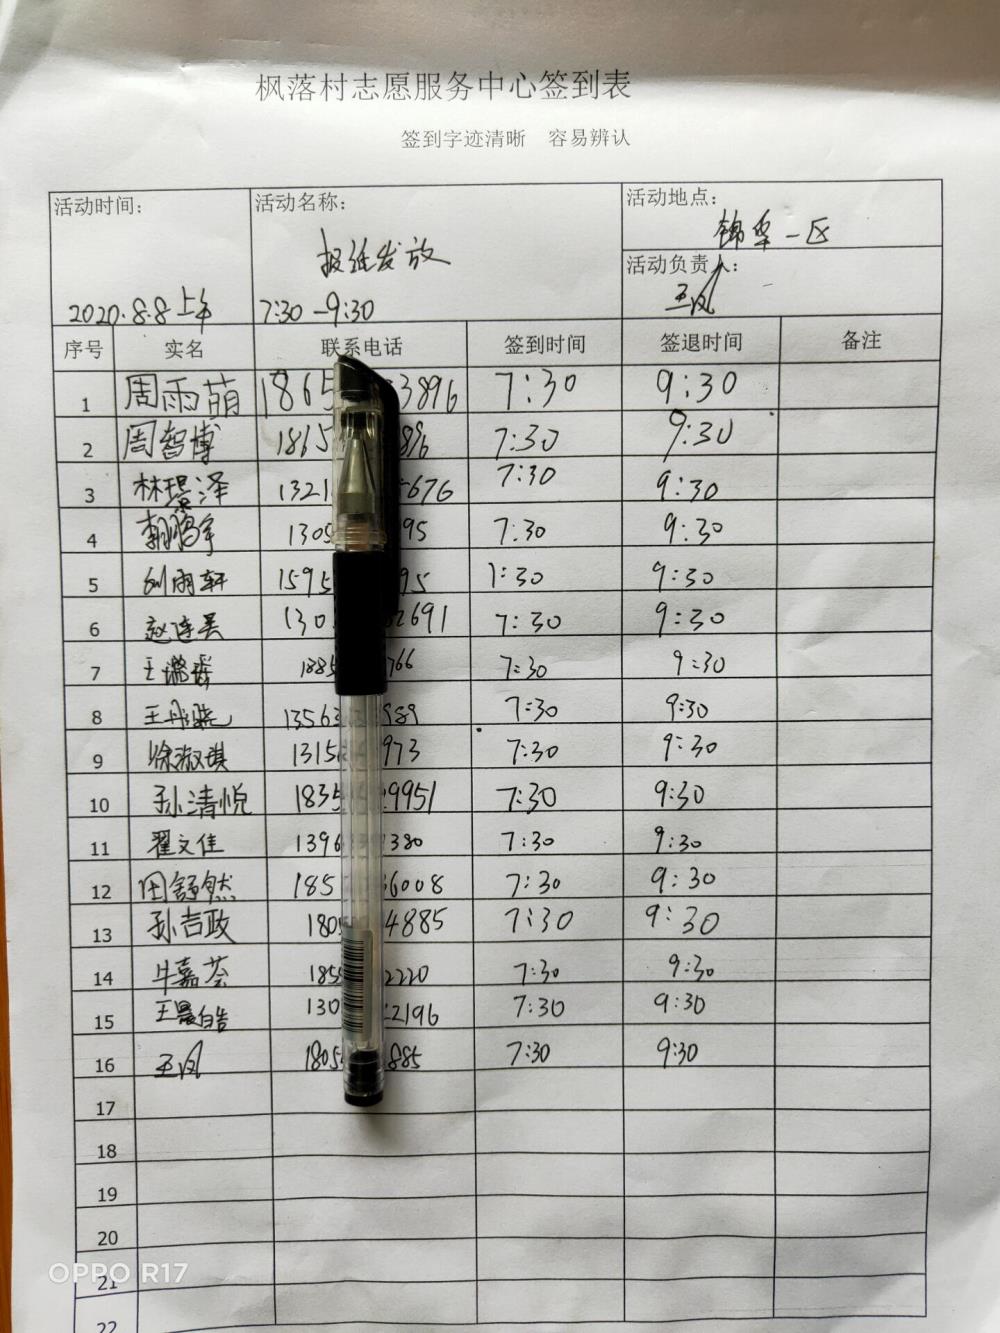 枫落村志愿服务中心签到表
签到字迹清晰 容易辨认
活动时间: 活动名称: 活动地点:
锦华一区
报纸发放
活动负责人:
王凤
2020.8.8上午 7:30-9:30
序号 实名 联系电话 签到时间 签退时间 备注
1 周雨萌 1865 3896 7:30 9:30
2 周智博 1865 896 7:30 9:30
3 林璟泽 1321 676 7:30 9:30
4 1305 95 7:30 9:30
5 刘雨轩 1595 95 7:30 9:30
6 赵连昊 130 2691 7:30 9:30
7 王 1885 766 7:30 9:30
8 王丹晓 13563 989 7:30 9:30
9 徐淑琪 1315 973 7:30 9:30
10 孙清悦 1835 9951 7:30 9:30
11 翟文佳 1396 1380 7:30 9:30
12 田舒然 185 6008 7:30 9:30
13 孙吉政 180 4885 7:30 9:30
14 牛嘉荟 185 2220 7:30 9:30
15 王晨皓 130 2196 7:30 9:30
16 王凤 1805 885 7:30 9:30
17
18
19
20
21
22
OPPO R17